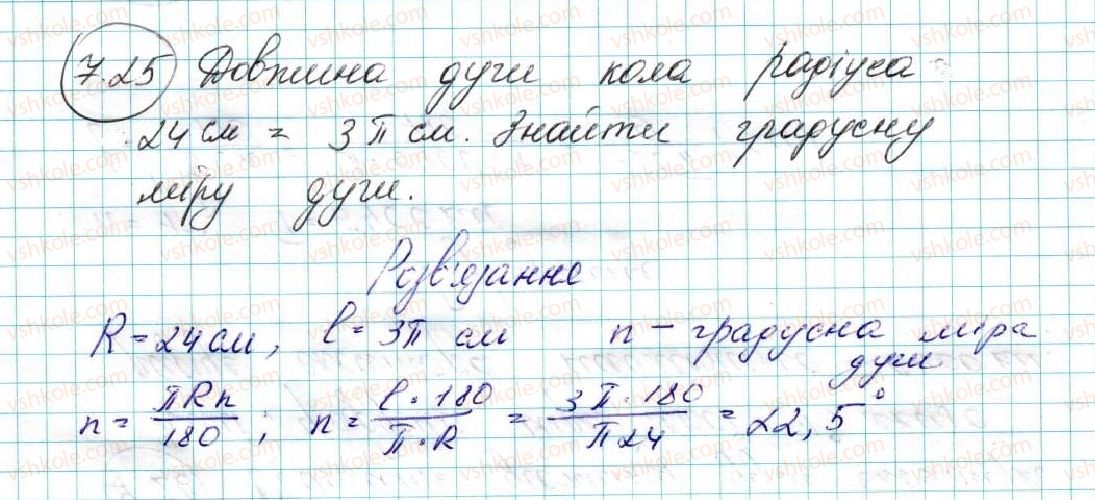 7.25 Довжина дуги кола радіуса
24 см = 3π см. Знайти градусну
міру дуги.
Розв'язання
R = 24 см, l = 3π см n – градусна міра
дуги
n = πRn/180 ; n = l·180/π·R = 3π·180/π24 = 22,5°